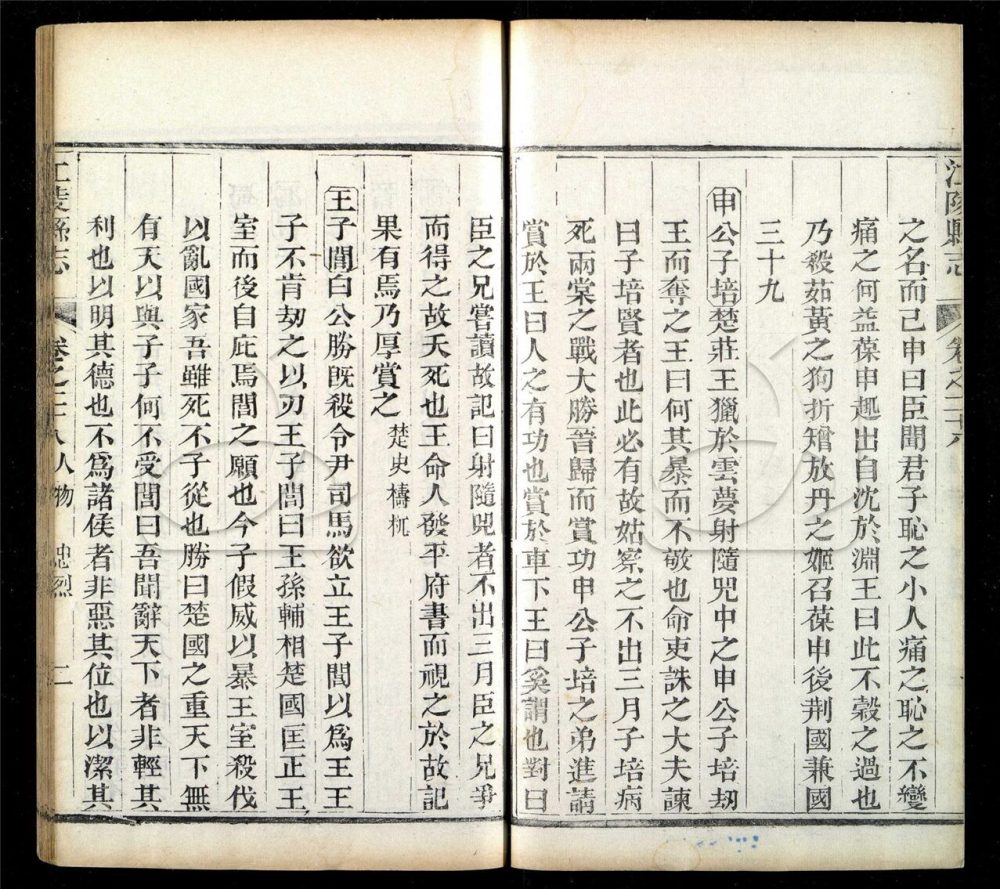 江陵縣志
卷之二十八
之名而己申曰臣聞君子恥之小人痛之恥之不變
痛之何益葆申趨出自沈於淵王曰此不穀之過也
乃殺茹黃之狗折矰放丹之姬召葆申後荆國兼國
三十九
申公子培楚莊王獵於雲夢射隨兕中之申公子培劫
王而奪之王曰何其暴而不敬也命吏誅之大夫諫
曰子培賢者也此必有故姑察之不出三月子培病
死兩棠之戰大勝晉歸而賞功申公子培之弟進請
賞於王曰人之有功也賞於車下王曰奚謂也對曰
臣之兄嘗讀故記曰射隨兕者不出三月臣之兄爭
而得之故夭死也王命人發平府書而視之於故記
果有焉乃厚賞之 楚史檮杌
王子閭白公勝旣殺令尹司馬欲立王子閭以爲王王
子不肯劫之以刃王子閭曰王孫輔相楚國匡正王
室而後自庇焉閭之願也今子假威以暴王室殺伐
以亂國家吾雖死不子從也勝曰楚國之重天下無
有天以與子子何不受閭曰吾聞辭天下者非輕其
利也以明其德也不爲諸侯者非惡其位也以潔其
江陵縣志
卷之二十八 人物 忠烈 二